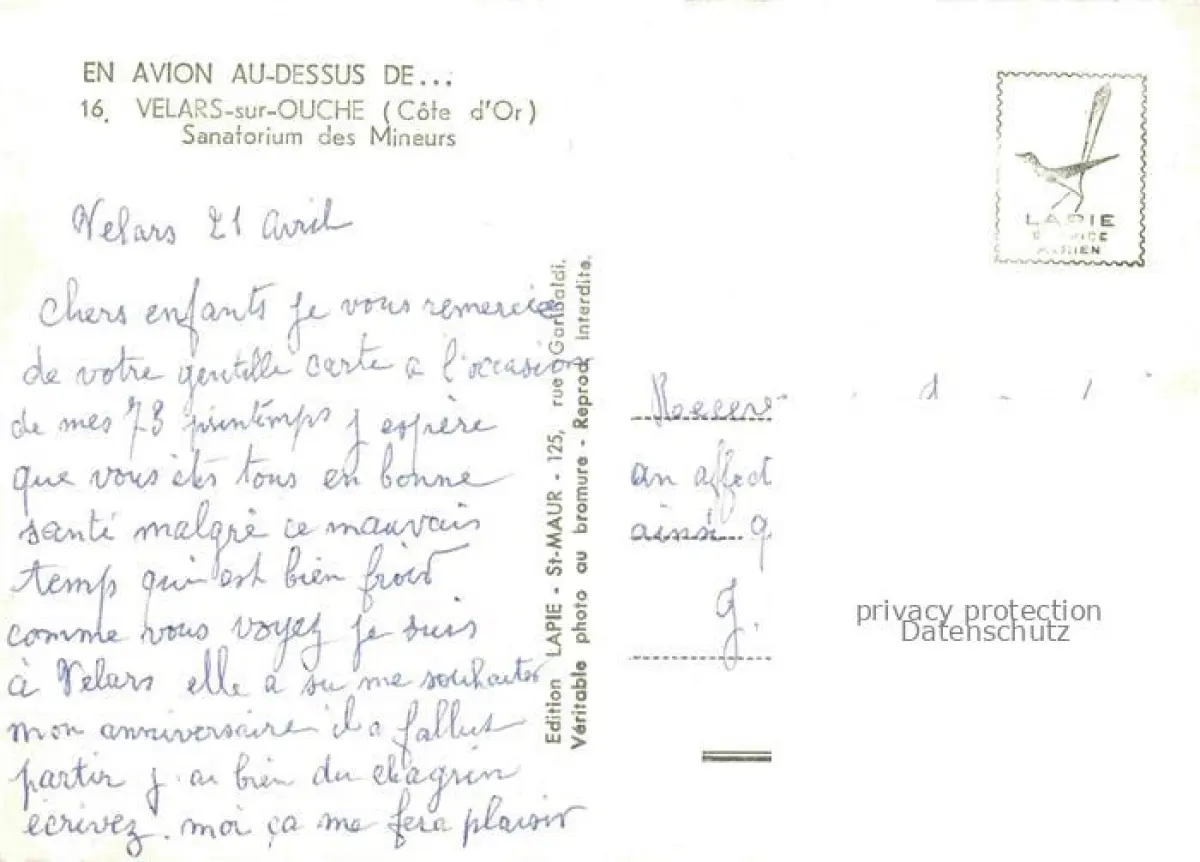 EN AVION AU-DESSUS DE...
16. VELARS-sur-OUCHE (Côte d'Or)
Sanatorium des Mineurs
Velars 21 avril
chers enfants je vous remercie
de votre gentille carte a l'occasion
de mes 73 printemps j espère
que vous êts tous en bonne
santé malgré ce mauvais
temp qui est bien froid
comme vous voyez je suis
à Velars elle a su me souhaiter
mon anniversaire il a fallut
partir j ai bien du chagrin
écrivez. moi ça me fera plaisir
Edition LAPIE - St-MAUR - 125, rue Garibaldi.
Véritable photo au bromure - Reprod. interdite.
LAPIE
SERVICE
AERIEN
an affect
ainsi q
G.
privacy protection
Datenschutz